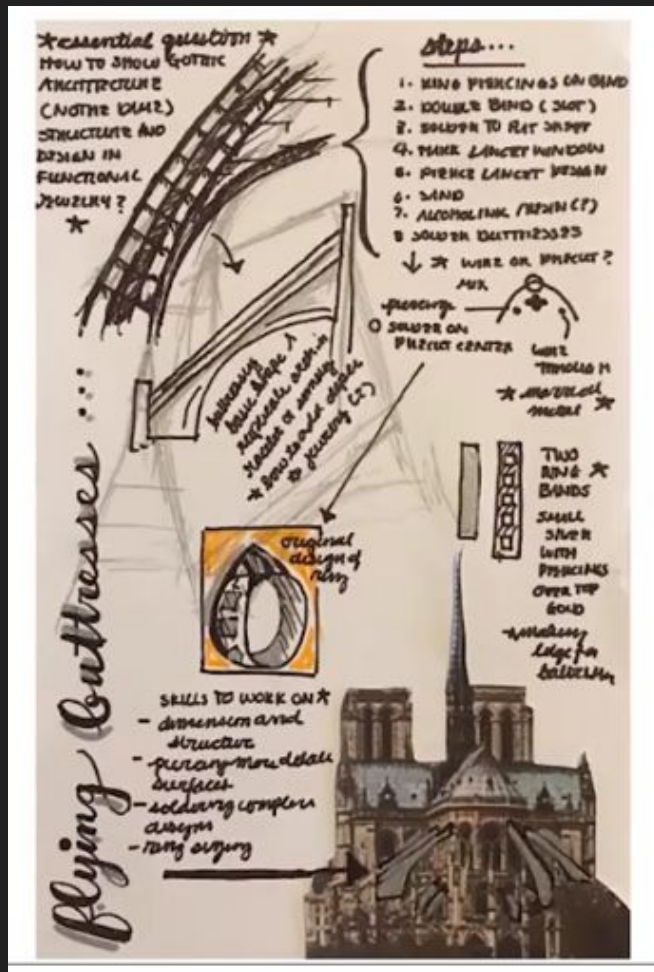 *essential question*
HOW TO SHOW GOTHIC
ARCHITECTURE
(NOTRE DAME)
STRUCTURE AND
DESIGN IN
FUNCTIONAL
JEWELRY?
*
steps....
1. RING PIERCINGS ON BAND
2. DOUBLE BAND (SLOT)
3. SOLDER TO FLAT SHEET
4. MAKE LANCET WINDOW
5. PIERCE LANCET DESIGN
6. SAND
7. ALCOHOL INK / RESIN (?)
8 SOLDER BUTTRESSES
↓ * WIRE OR PIERCE?
MIX
piercing
O SOLDER ON
PIERCED CENTER
WIRE
THROUGH
*
metal *
basic shape
replicate arch in
* how to add
to jewelry (?)
original
design of
ring
TWO
RING *
BANDS
SMALL
SILVER
WITH
PIERCINGS
OVER TOP
GOLD
edge for
flying buttresses ...
SKILLS TO WORK ON *
- dimension and
structure
- piercing more delicate
surfaces
- soldering complex
designs
- ring sizing